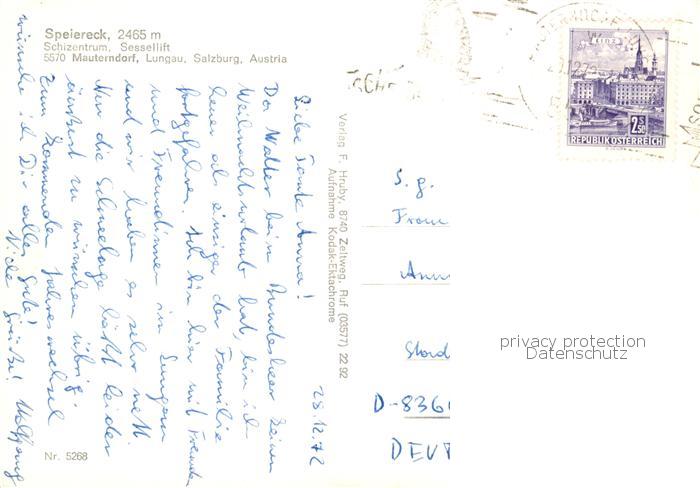 Speiereck, 2465 m
Schizentrum, Sessellift
5570 Mauterndorf, Lungau, Salzburg, Austria
28.12.72
Liebe Tante Anna!
Da Walter beim Bundesheer keinen
Weihnachtsurlaub hat, bin ich
heuer als einziger der Familie
fortgefahren. Ich bin hier mit Freunden
und Freundinnen im Lungau
und wir haben es sehr nett
Nur die Schneelage läßt leider
äußerst zu wünschen übrig.
Zum kommenden Jahreswechsel
wünsche ich Dir alles Gute!
Viele Grüße! Wolfgang
Nr. 5268
Verlag F. Hruby, 8740 Zeltweg, Ruf (03577) 22 92
Aufnahme Kodak-Ektachrome
LINZ
2.50
REPUBLIK ÖSTERREICH
S. g.
Frau
D-836
DEU
privacy protection
Datenschutz